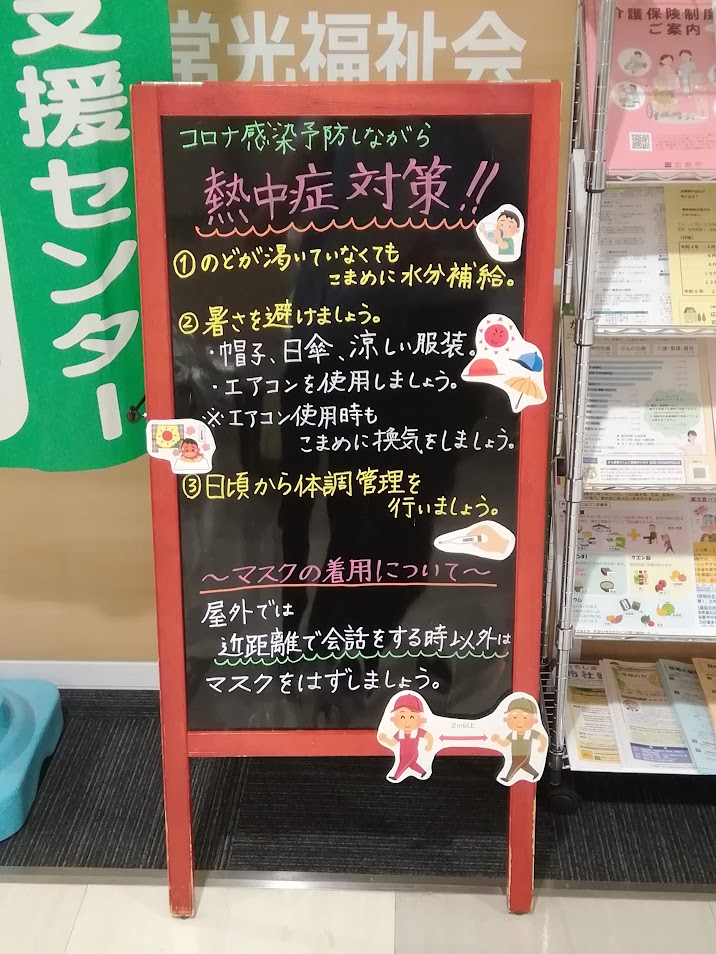 支援センター
常光福祉会
コロナ感染予防しながら
熱中症対策!!
①のどが渇いていなくても
こまめに水分補給。
②暑さを避けましょう。
・帽子、日傘、涼しい服装。
・エアコンを使用しましょう。
※エアコン使用時も
こまめに換気をしましょう。
③日頃から体調管理を
行いましょう。
～マスクの着用について～
屋外では
近距離で会話をする時以外は
マスクをはずしましょう。
2m以上
介護保険制度
ご案内
広島市
クエン酸